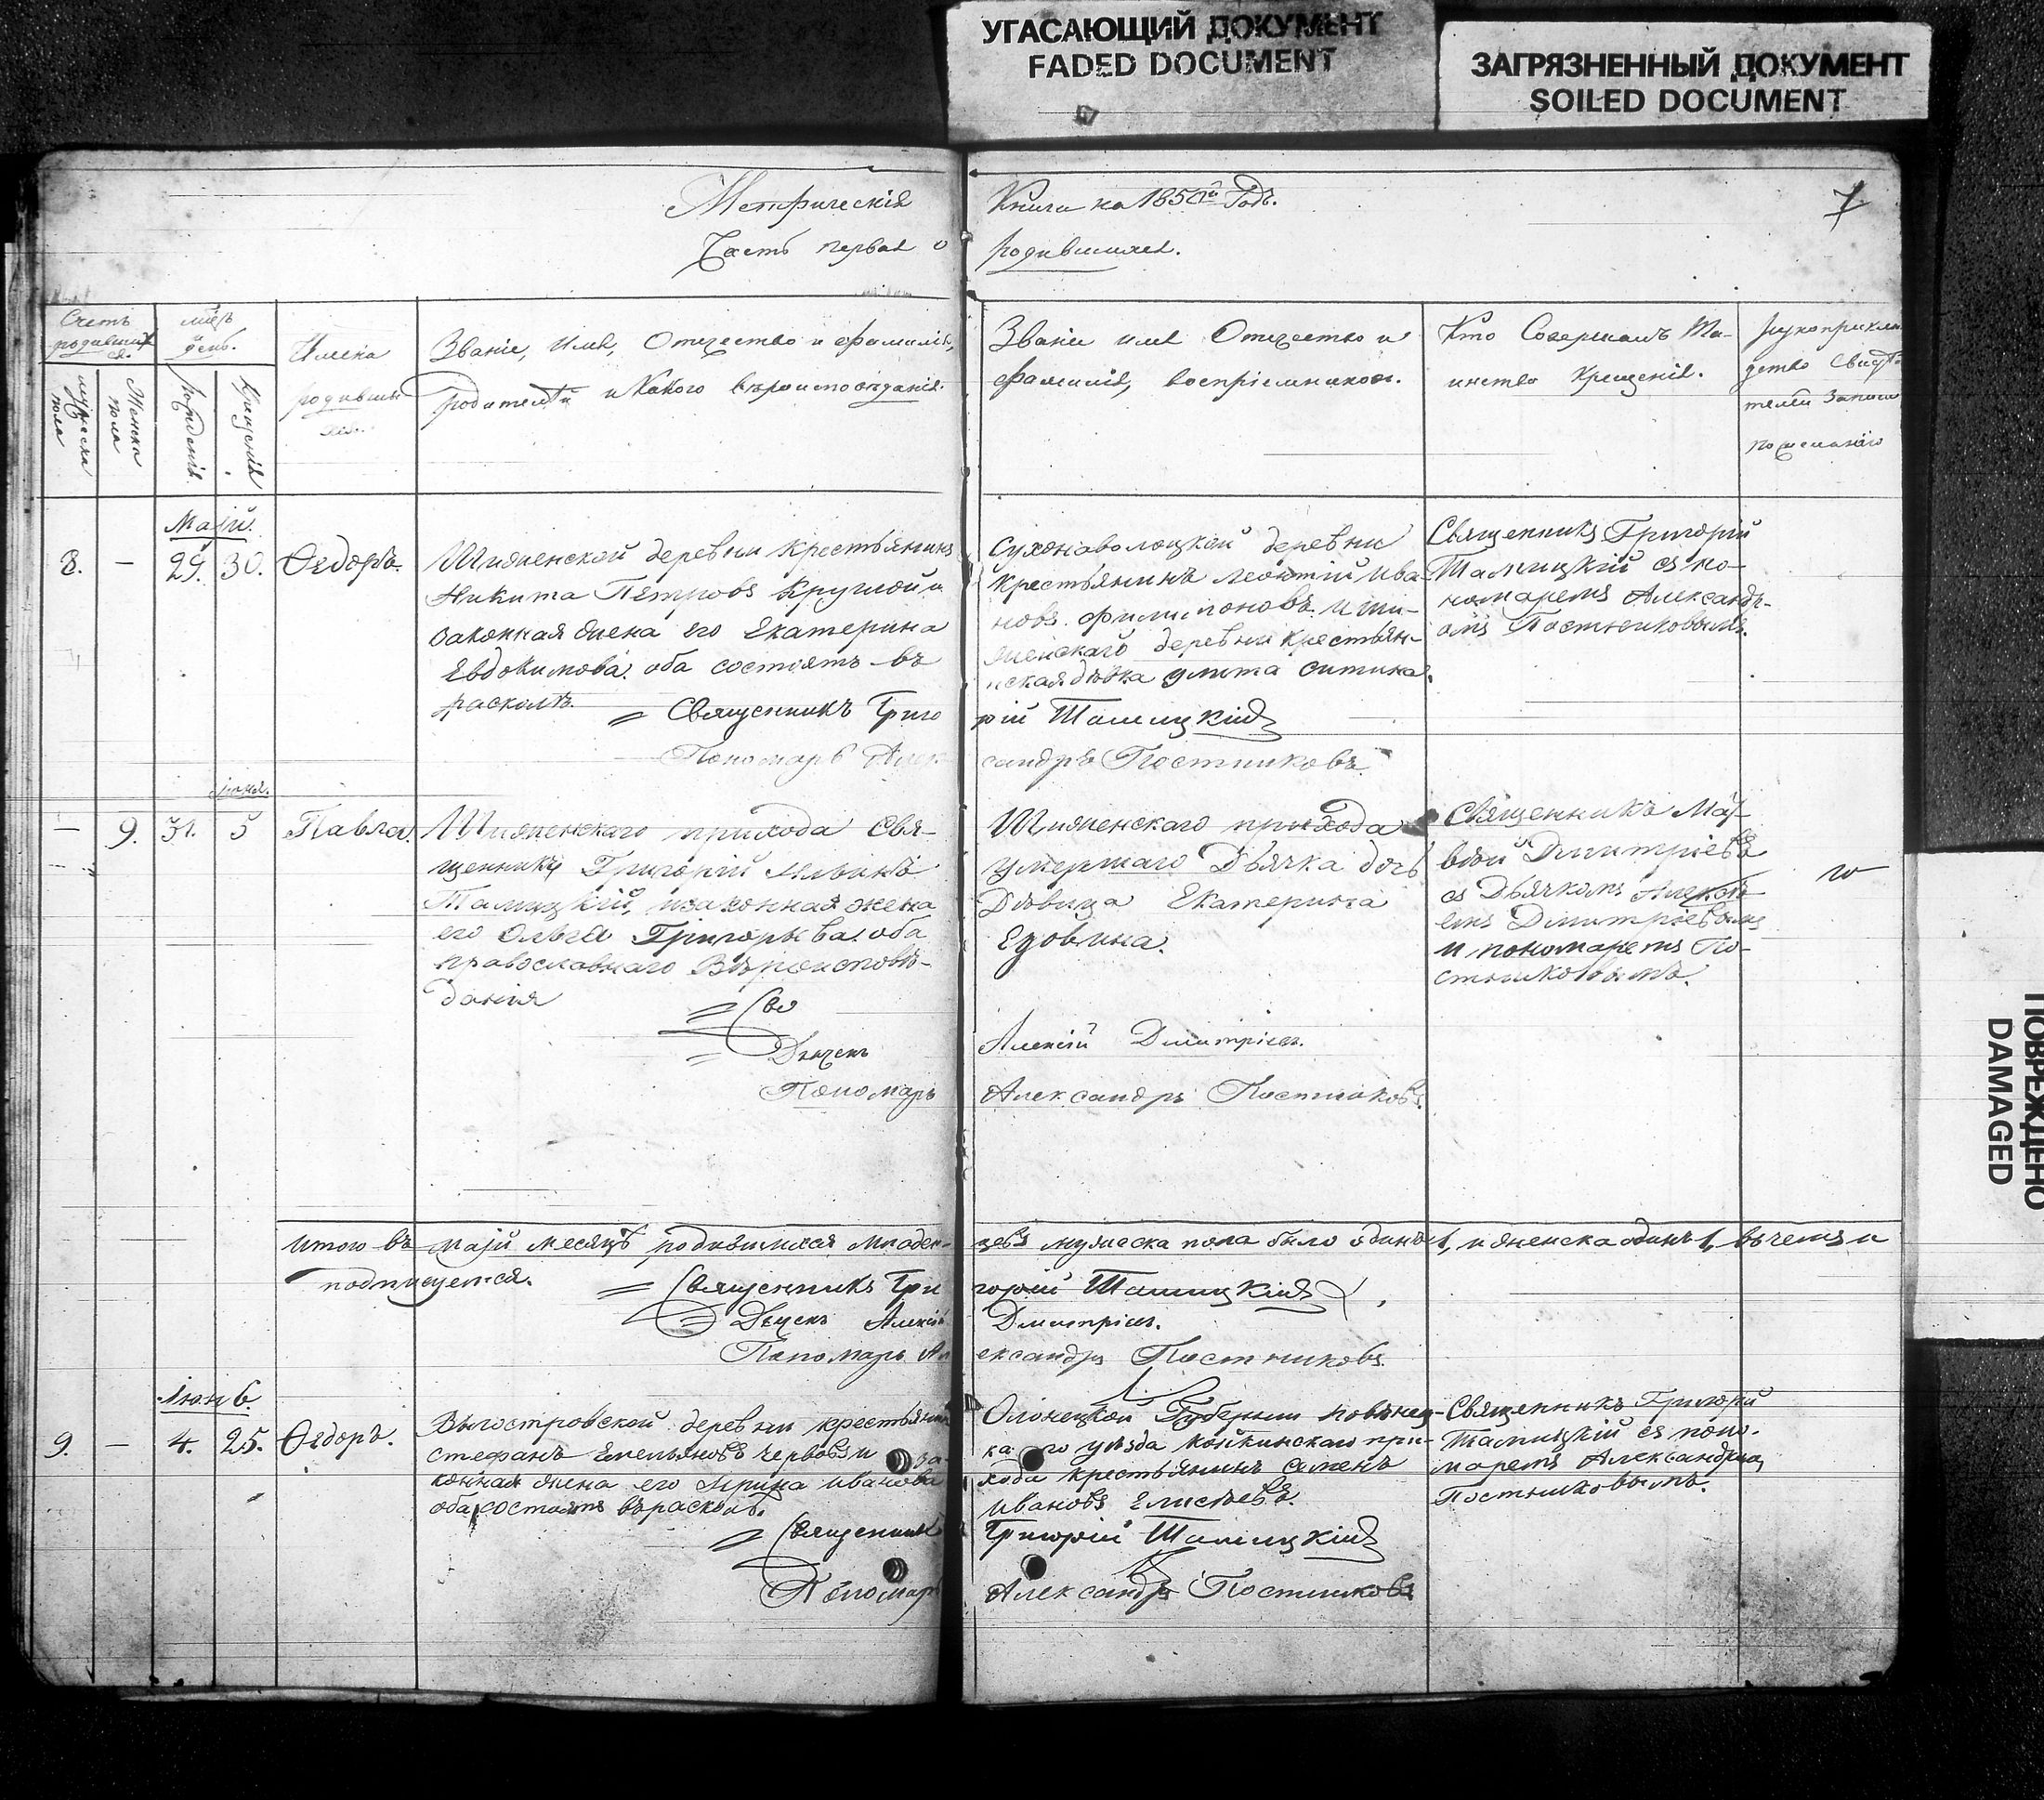 УГАСАЮЩИЙ ДОКУМЕНТ
FADED DOCUMENT
ЗАГРЯЗНЕННЫЙ ДОКУМЕНТ
SOILED DOCUMENT
ПОВРЕЖДЕНО
DAMAGED
Метрическія
Книги на 185 Годъ.
7
Часть первая о
родившихся.
Счетъ родившихся.
мужеска пола
Женска пола
мѣсць и день.
рожденія
крещенія
Имена
родившихся.
Званіе, имя, Отчество и фамилія,
родителей и какого вѣроисповѣданія.
Званіе имя Отчество и
фамилія, воспріемниковъ.
Кто Совершалъ Та-
инство крещенія.
рукоприкла
дство Свидѣ
телей записи
по желанію
Маій.
8. — 29. 30. Ѳедоръ.
Шиженской деревни крестьянинъ
Никита Петровъ Круглой и
законная жена его Екатерина
Евдокимова. оба состоятъ въ
расколѣ.
= Священникъ Григо
Пономарь Алек
Сухонаволоцкой деревни
крестьянинъ Леонтій Ива-
новъ Филимоновъ. и Ши-
женскаго деревни крестьян-
ская дѣвка Ситина.
рій Тамицкій
сандръ Постниковъ
Священникъ Григорій
Тамицкій съ по-
номаремъ Александр-
омъ Постниковымъ.
Іюня.
— 9. 31. 5 Павла.
Шиженскаго прихода Свя-
щенникъ Григорій Ильинъ
Тамицкій, и законная жена
его Ольга Григорьева. оба
православнаго Вѣроисповѣ-
данія
= Св
= Дьячекъ
Пономарь
Шиженскаго прихода
умершаго Дьячка дочь
Дѣвица Екатерина
Едовина.
Алексій Дмитріевъ.
Александръ Постниковъ.
Священникъ Мат-
вѣй Дмитріевъ
съ Дьячкомъ Алексѣ
емъ Дмитріевымъ
и пономаремъ По-
стниковымъ.
Итого въ маји месяцѣ родившихся младен-
цевъ мужеска пола было одинъ 1, и женска одинъ 1, въ чемъ и
подпишемся.
= Священникъ Гри
горій Тамицкій
Дьячекъ Алексій
Дмитріевъ.
Пономарь Ал
ександръ Постниковъ
Іюнь.
9. — 4. 25. Ѳедоръ.
Выгостровской деревни крестьянинъ
Стефанъ Емельяновъ Червовъ и за-
конная жена его Ирина Иванова
оба состоятъ въ расколѣ.
= Священникъ
Пономарь
Олонецкой Губерніи Повѣнец-
ка го уѣзда Койкинскаго при-
хода крестьянинъ Семенъ
Ивановъ Елисѣевъ.
Григорій Тамицкій
Александръ Постниковъ
Священникъ Григорій
Тамицкій съ поно-
маремъ Александромъ
Постниковымъ.